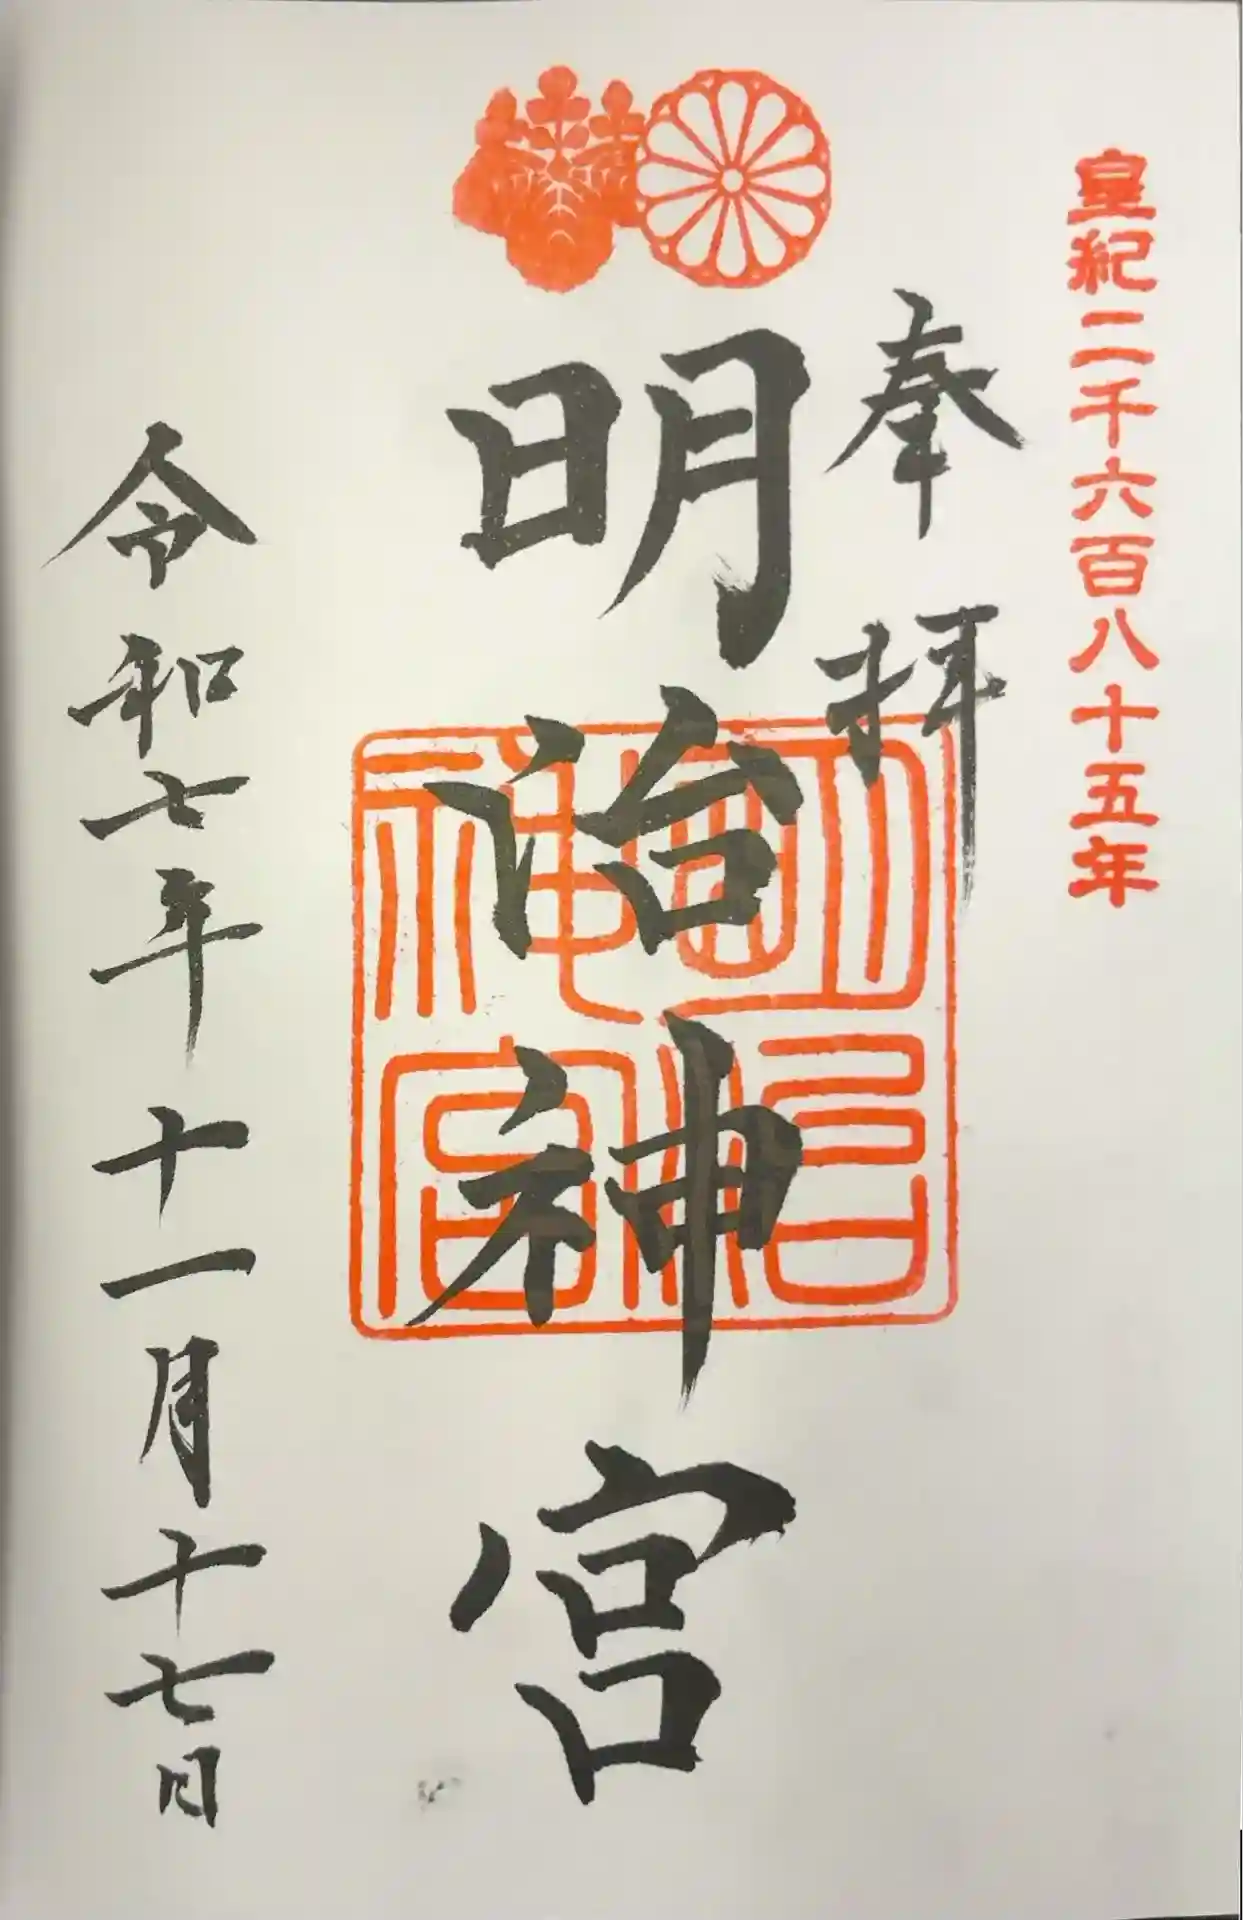 皇紀二千六百八十五年
奉拝
明治神宮
明治神宮
令和七年十一月十七日